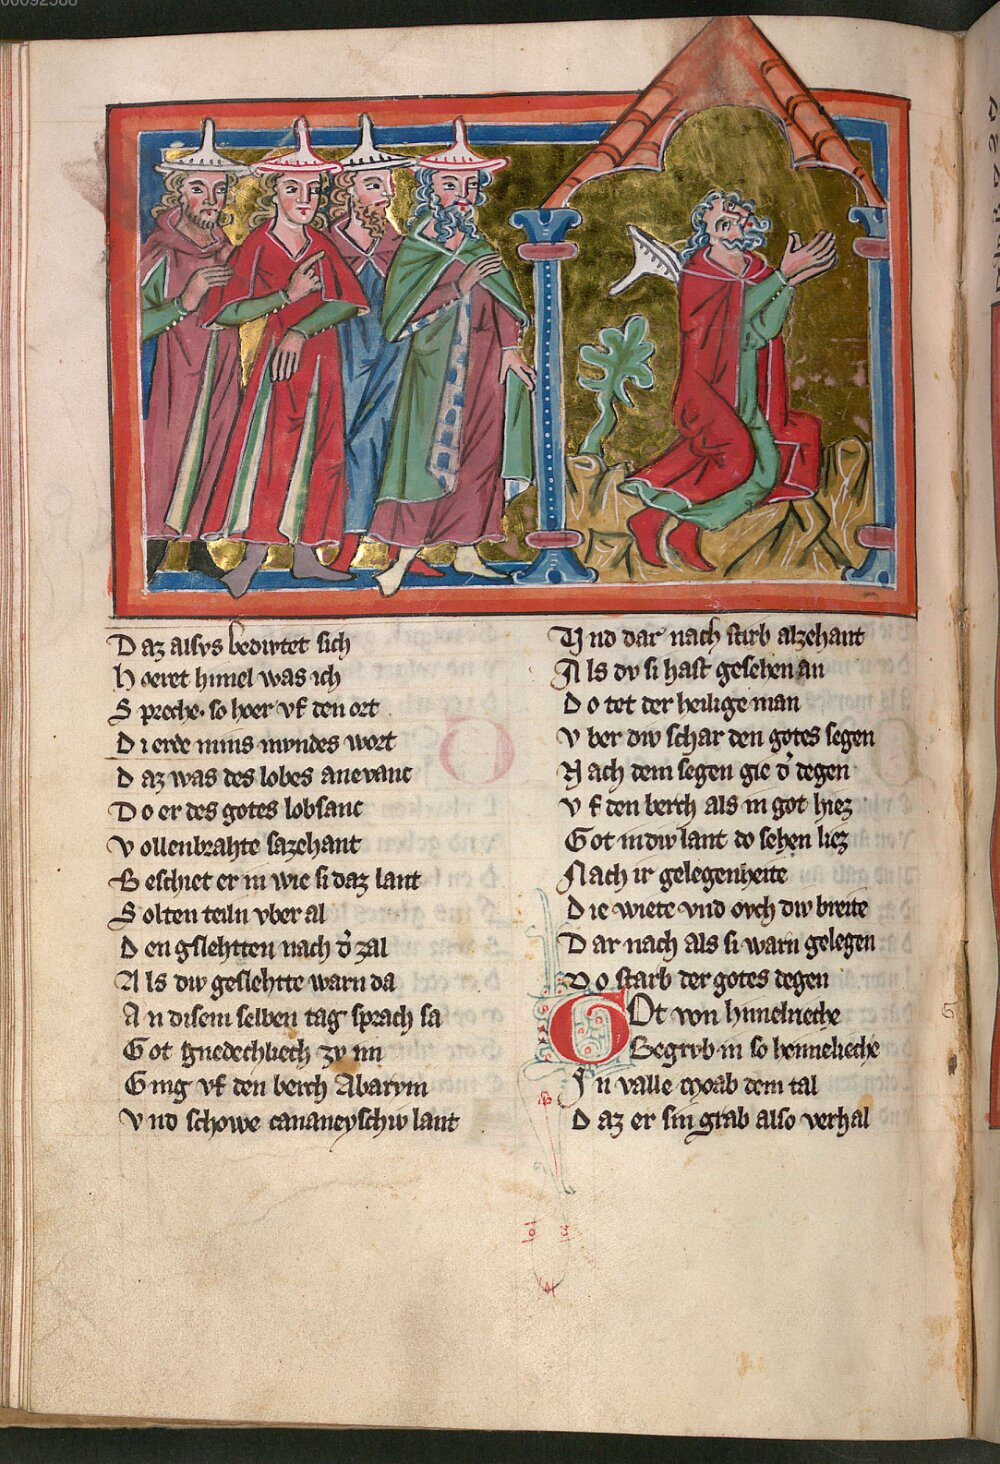 00092588
Daz alsvs bedivtet sich
Hoeret himel was ich
Spreche· so hoer vf den ort
Di erde mins mvndes wort
Daz was des lobes anevanc
Do er des gotes lobsanc
Vollenbrahte sazehant
Beschiet er in wie si daz lant
Solten teiln vber al
Den gslehtten nach d' zal
Als div geslehtte warn da
An disem selben tag sprach sa
Got gnedechliech zv im
Ging vf den berch Abarym
Vnd schowe cananeyschiv lant
Vnd dar nach stirb alzehant
Als dv si hast gesehen an
Do tet der heilige man
Vber div schar den gotes segen
Nach dem segen gie d' degen
Vf den berch als in got hiez
Got in div lant do sehen liez
Nach ir gelegenheite
Die wiete vnd ovch div breite
Dar nach als si warn gelegen
Do starb der gotes degen
GOt von himelreche
Begrvb in so heimeliche
In valle moab dem tal
Daz er sin grab also verhal